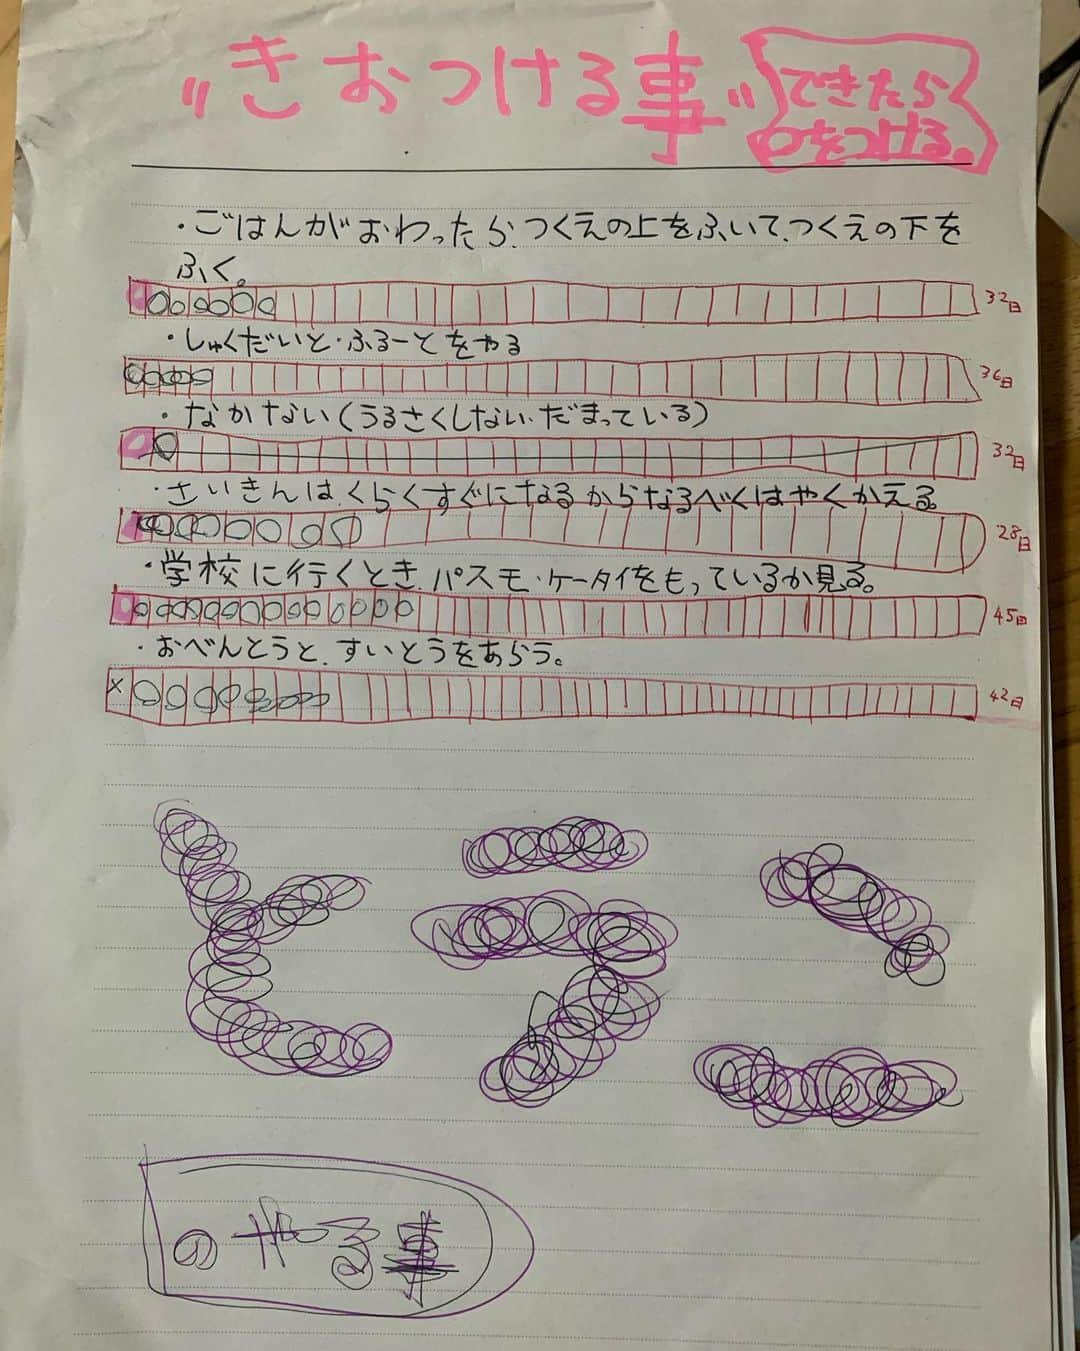 "きおつける事"
できたら
○をつける。
・ごはんがおわったら、つくえの上をふいて、つくえの下を
ふく。
32日
・しゅくだいと・ふるーとをやる
36日
・なかない(うるさくしない・だまっている)
32日
・さいきんは、くらくすぐになるからなるべくはやくかえる。
28日
・学校に行くとき、パスモ・ケータイをもっているか見る。
45回
・おべんとうと、すいとうをあらう。
×
42日
とラへ
のやる事